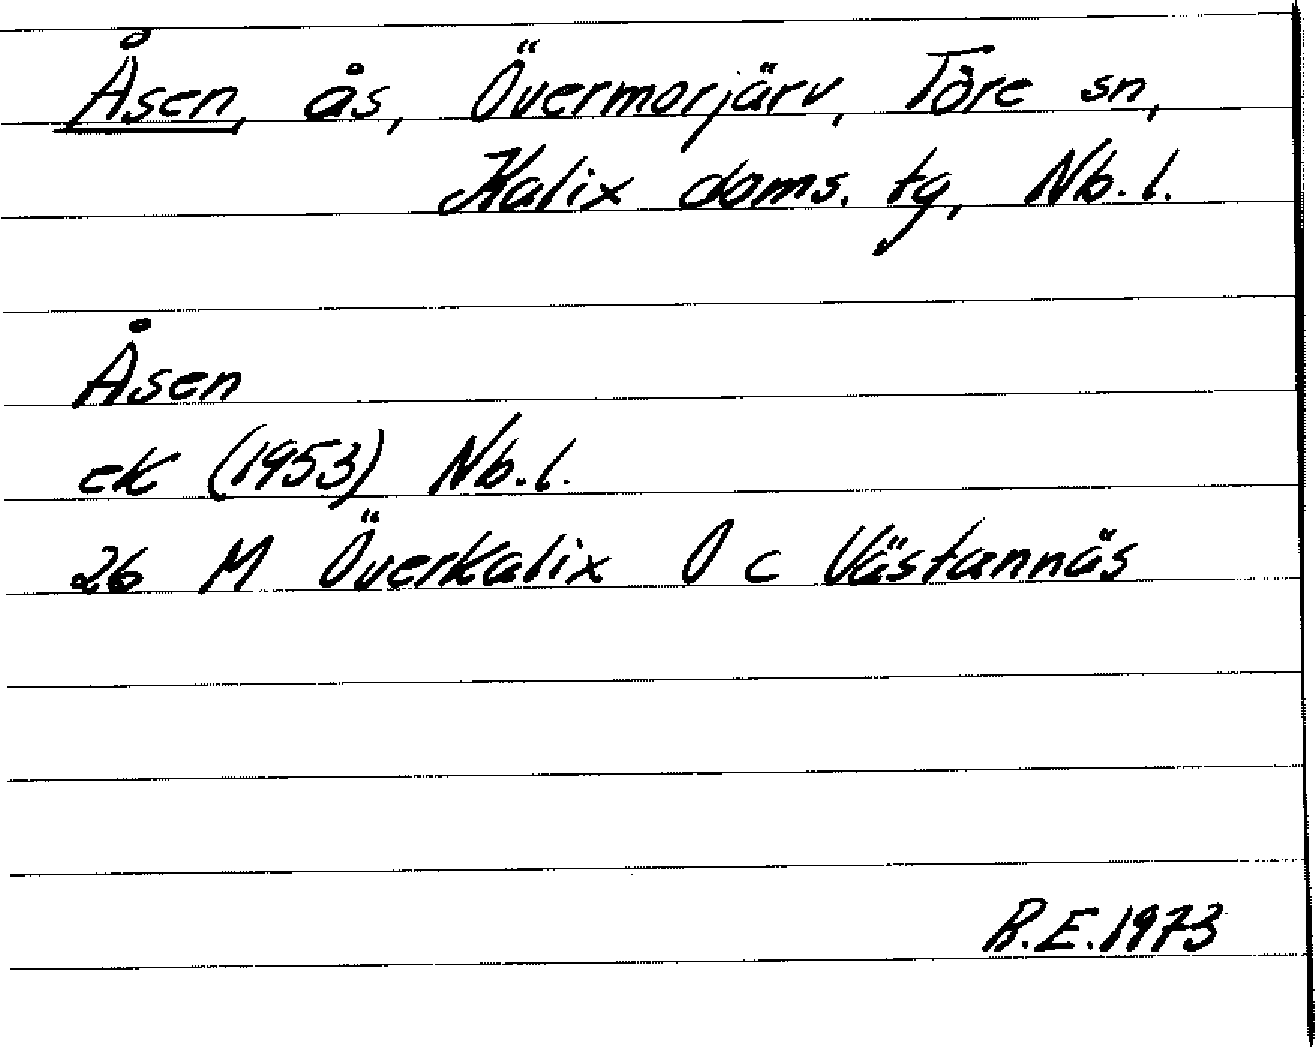 Åsen, ås, Övermorjärv, Töre sn,
Kalix doms. tg, Nb. l.
Åsen
ek (1953) Nb. l.
26 M Överkalix O c Västannäs
R.E. 1973